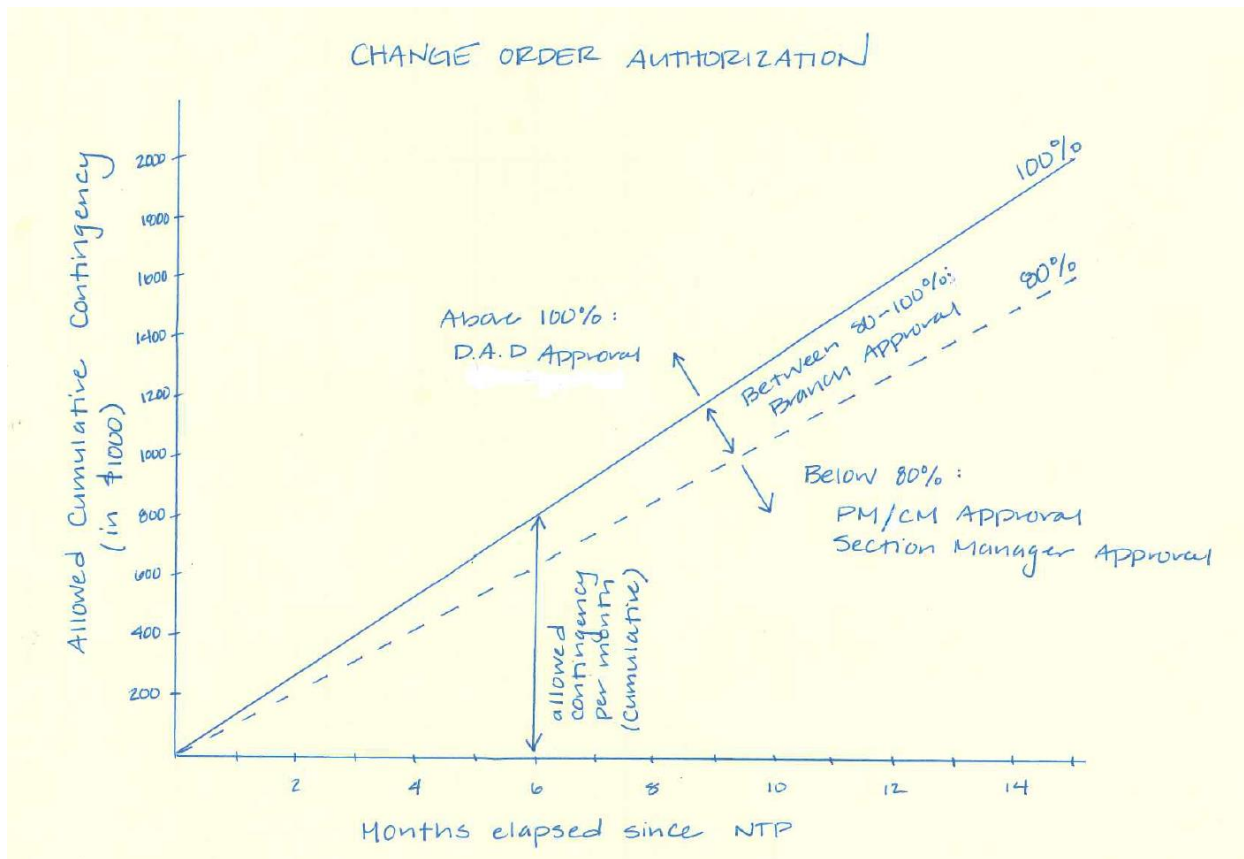 CHANGE ORDER AUTHORIZATION
Allowed Cumulative Contingency
(in $1000)
2000
1800
1600
1400
1200
1000
800
600
400
200
100%
80%
Above 100%:
D.A.D Approval
Between 80-100%:
Branch Approval
Below 80%:
PM/CM Approval
Section Manager Approval
allowed
contingency
per month
(Cumulative)
2
4
6
8
10
12
14
Months elapsed since NTP